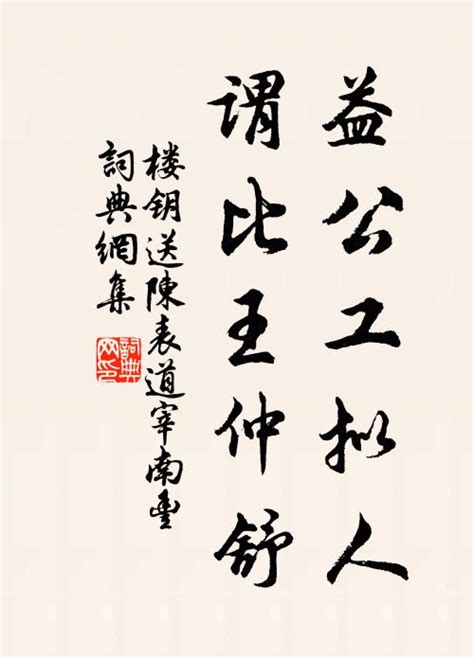 益公工拟人
谓比王仲舒
楼钥送陳表道宰南豐
詞典網集
詞典
网印